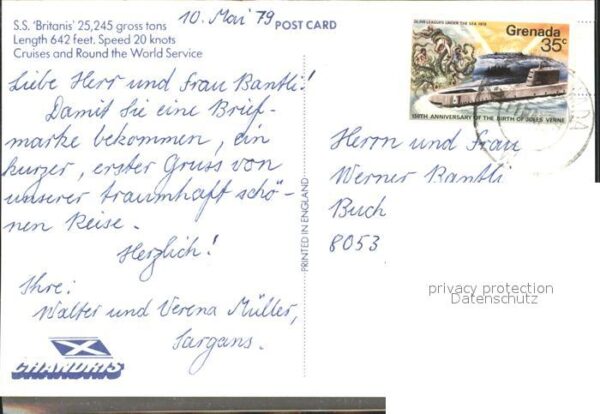 S.S. 'Britanis' 25,245 gross tons
Length 642 feet. Speed 20 knots
Cruises and Round the World Service
10. Mai 79
POST CARD
Liebe Herr und Frau Bantli!
Damit Sie eine Brief-
marke bekommen, ein
kurzer, erster Gruss von
unserer traumhaft schö-
nen Reise.
Herzlich!
Ihre:
Walter und Verena Müller,
Sargans.
CHANDRIS
PRINTED IN ENGLAND
20,000 LEAGUES UNDER THE SEA 1870
Grenada
35c
150TH ANNIVERSARY OF THE BIRTH OF JULES VERNE
Herrn und Frau
Werner Bantli
Buch
8053
privacy protection
Datenschutz